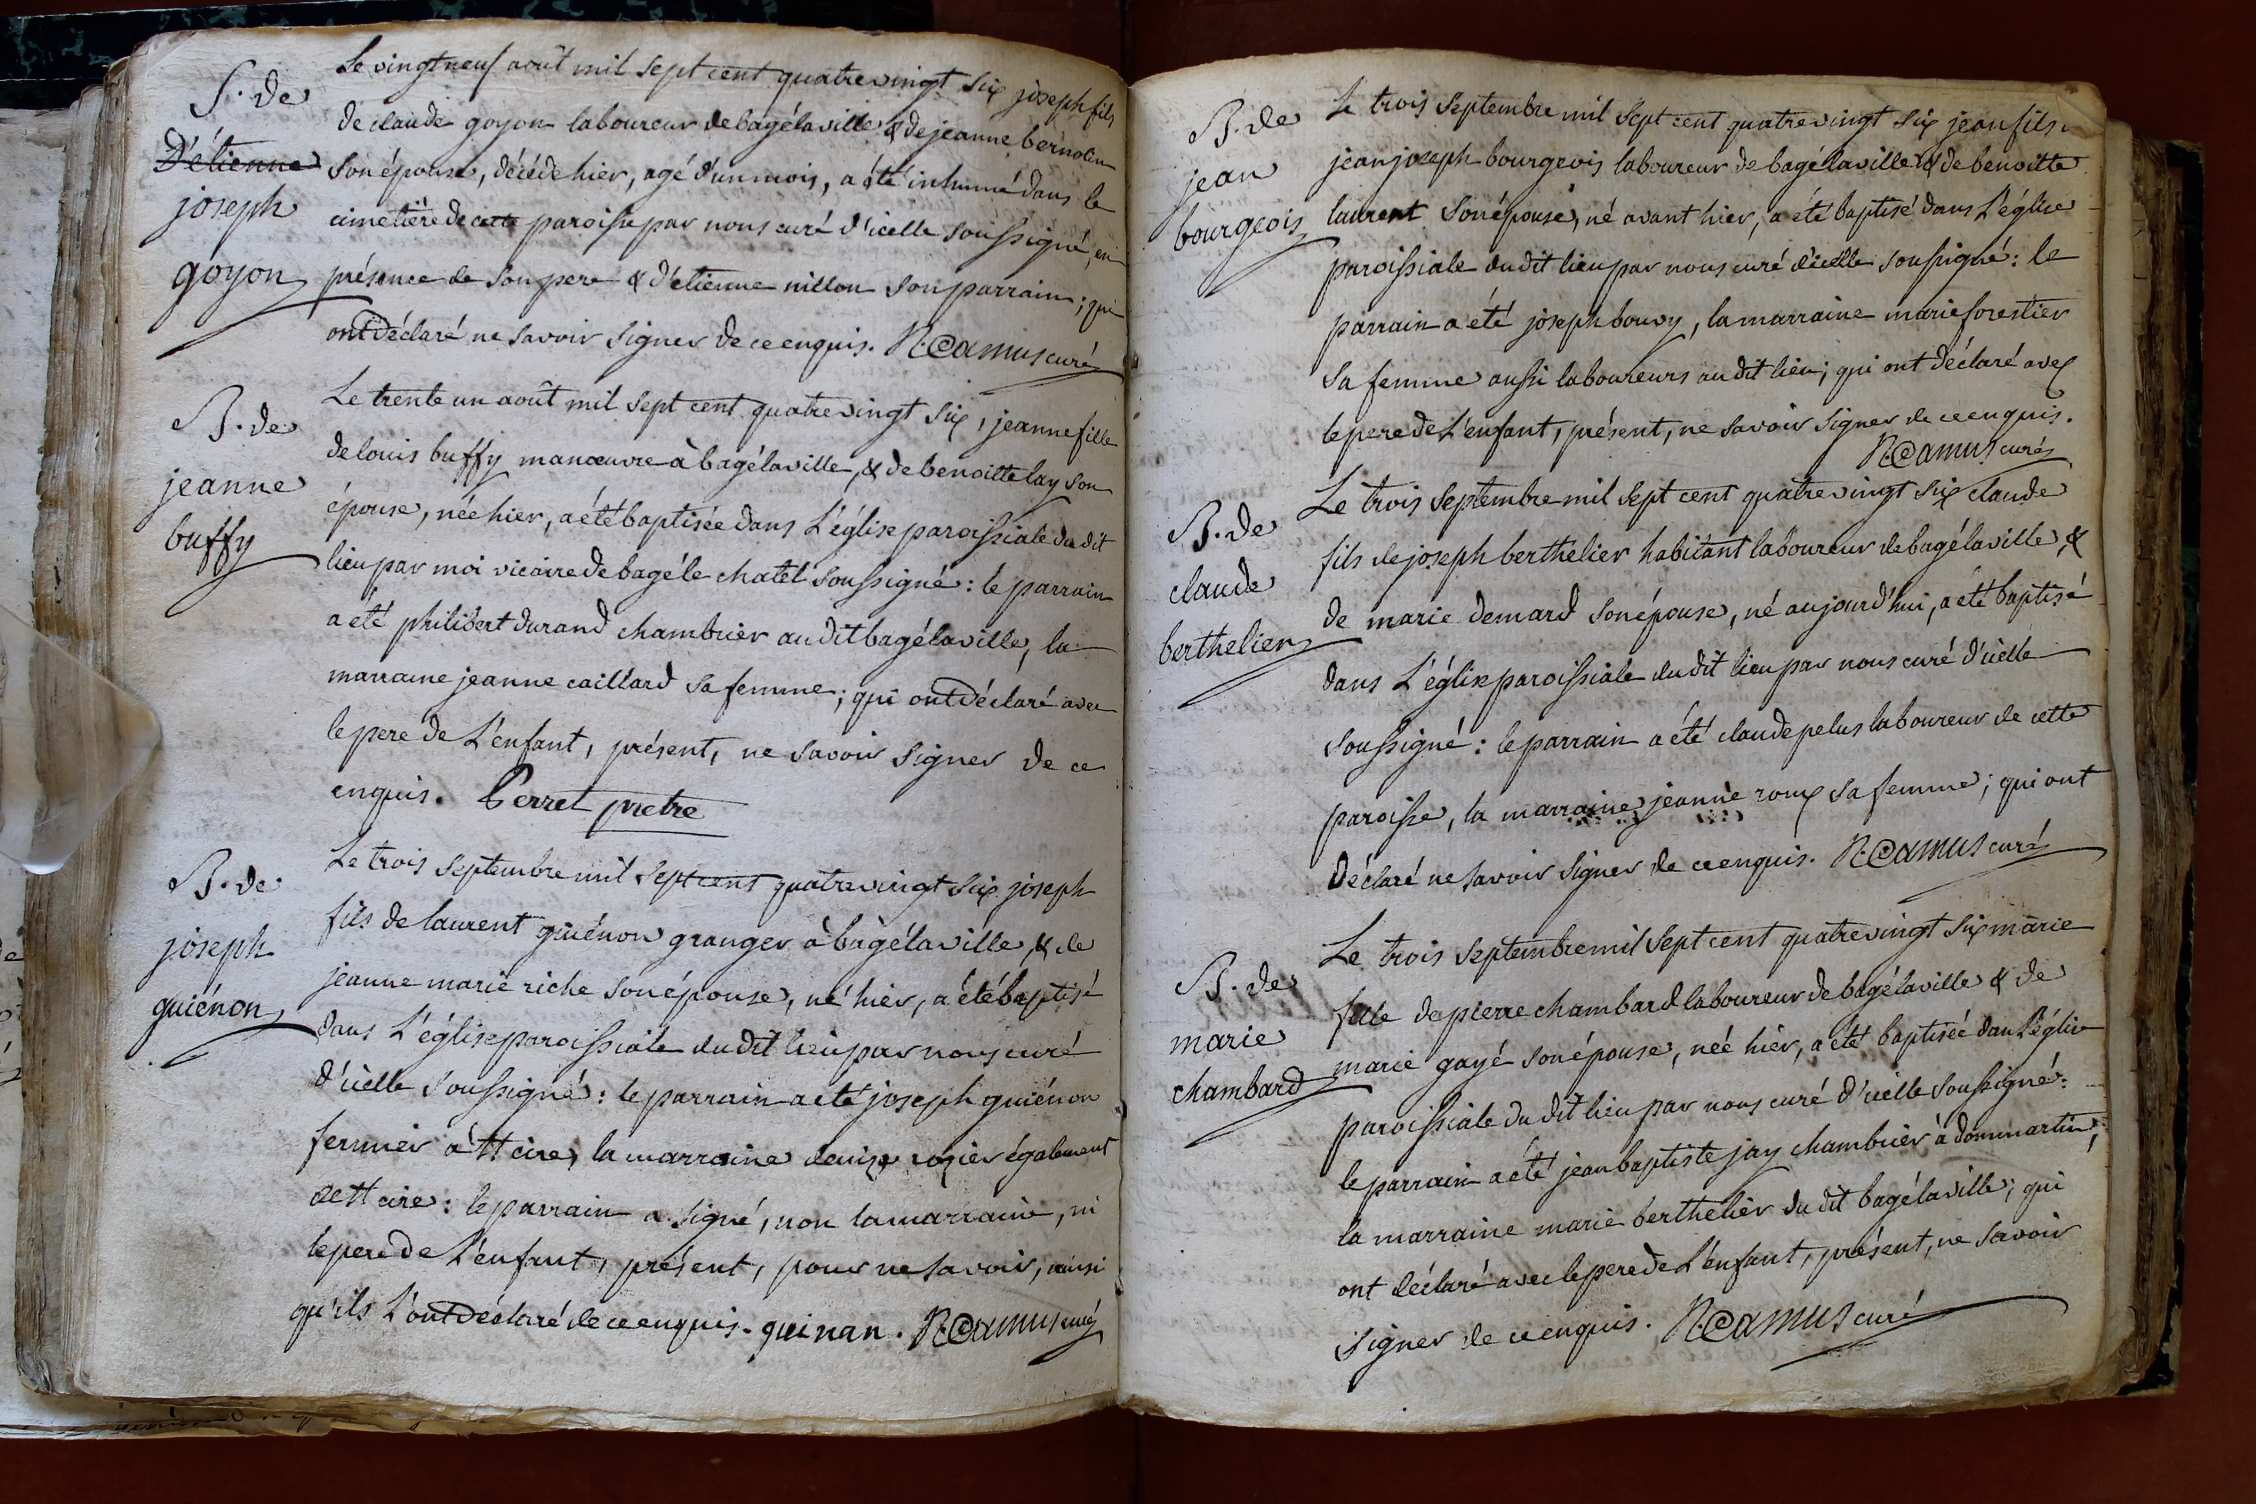 S. de
D'étienne
joseph
goyon
Le vingt neuf août mil sept cent quatre vingt six joseph fils
de claude goyon laboureur de bagélaville & de jeanne bernolin
son épouse, décédé hier, agé d'un mois, a été inhumé dans le
cimetière de cette paroisse par nous curé d'icelle soussigné, en
présence de son pere & d'étienne nillon son parrain; qui
ont déclaré ne savoir signer de ce enquis. R. Camus curé
B. de
jeanne
buffy
Le trente un août mil sept cent quatre vingt six, jeanne fille
de louis buffy manœuvre à bagélaville, & de benoitte lay son
épouse, née hier, a été baptisée dans L'église paroissiale du dit
lieu par moi vicaire de bagé le chatel soussigné: le parrain
a été philibert durand chambrier au dit bagélaville, la
marraine jeanne caillard sa femme; qui ont déclaré avec
le pere de L'enfant, présent, ne savoir signer de ce
enquis. Perret pretre
B. de
joseph
guiénon
Le trois septembre mil sept cent quatre vingt six joseph
fils de laurent guiénon granger à bagélaville, & de
jeanne marie riche son épouse, né hier, a été baptisé
dans L'église paroissiale du dit lieu par nous curé
d'icelle soussigné: le parrain a été joseph guiénon
fermier à st cire, la marraine denise rozier également
de st cire: le parrain a signé, non la marraine, ni
le pere de L'enfant, présent, pour ne savoir, ainsi
qu'ils L'ont déclaré de ce enquis. guinan. R. Camus curé
B. de
jean
bourgeois
Le trois septembre mil sept cent quatre vingt six jean fils
jean joseph bourgeois laboureur de bagélaville & de benoitte
laurent son épouse, né avant hier, a été baptisé dans L'église
paroissiale du dit lieu par nous curé d'icelle soussigné: le
parrain a été joseph bouvy, la marraine marie forestier
sa femme aussi laboureurs au dit lieu; qui ont déclaré avec
le pere de L'enfant, présent, ne savoir signer de ce enquis.
R. Camus curé
B. de
claude
berthelier
Le trois septembre mil sept cent quatre vingt six claude
fils de joseph berthelier habitant laboureur de bagélaville, &
de marie demard son épouse, né aujourd'hui, a été baptisé
dans L'église paroissiale du dit lieu par nous curé d'icelle
soussigné: le parrain a été claude pelus laboureur de cette
paroisse, la marraine jeanne roux sa femme; qui ont
déclaré ne savoir signer de ce enquis. R. Camus curé
B. de
marie
chambard
Le trois septembre mil sept cent quatre vingt six marie
fille de pierre chambard laboureur de bagélaville & de
marie gayé son épouse, née hier, a été baptisée dans L'église
paroissiale du dit lieu par nous curé d'icelle soussigné:
le parrain a été jean baptiste jay chambrier à dommartin,
la marraine marie berthelier du dit bagélaville; qui
ont déclaré avec le pere de L'enfant, présent, ne savoir
signer de ce enquis. R. Camus curé